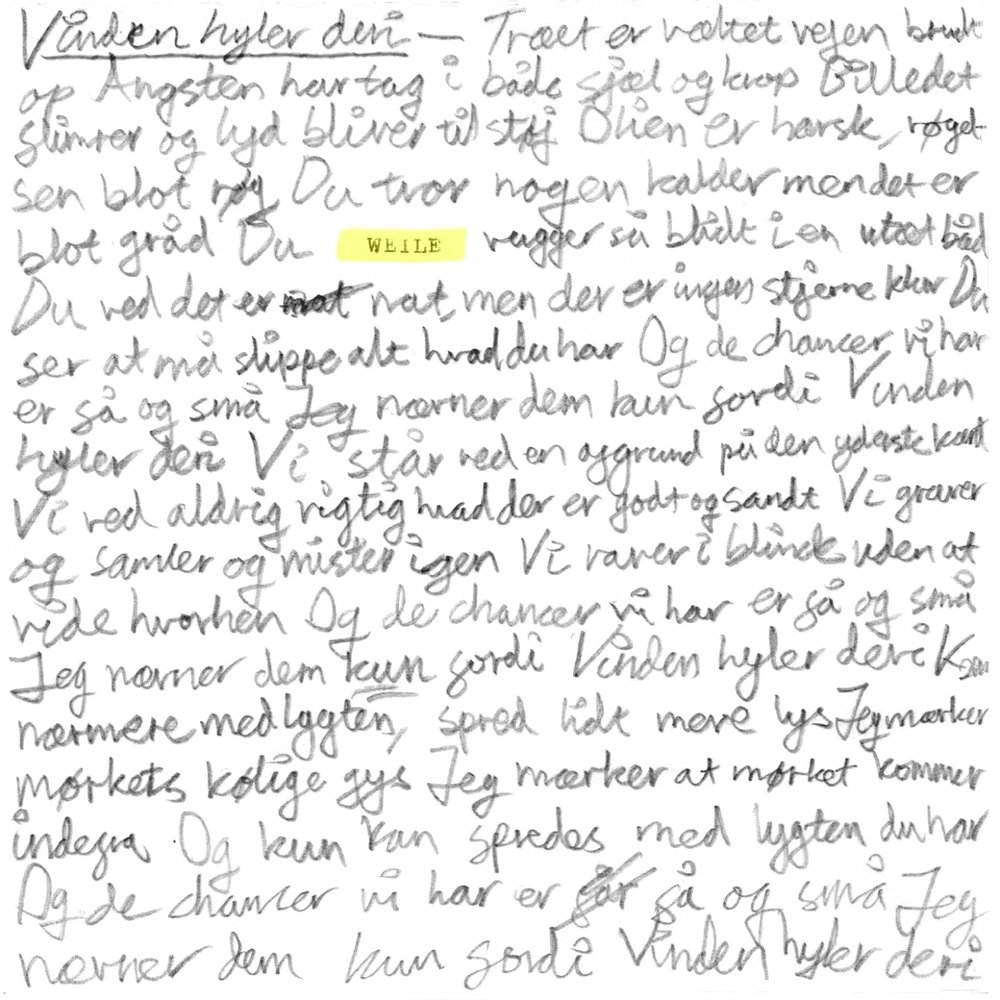 Vinden hyler deri — Træet er væltet vejen brudt
op Angsten har tag i både sjæl og krop Billedet
flimrer og lyd bliver til støj Olien er harsk, røgel-
sen blot røg Du tror nogen kalder men det er
blot gråd Du WEILE vugger så blidt i en utæt båd
Du ved det er nat nat, men der er ingen stjerne klar Du
ser at må slippe alt hvad du har Og de chancer vi har
er få og små Jeg nævner dem kun fordi Vinden
hyler deri Vi står ved en afgrund på den yderste kant
Vi ved aldrig rigtig hvad der er godt og sandt Vi graver
og samler og mister igen Vi raver i blinde uden at
vide hvorhen Og de chancer vi har er få og små
Jeg nævner dem kun fordi Vinden hyler deri Kom
nærmere med lygten, spred lidt mere lys Jeg mærker
mørkets kølige gys Jeg mærker at mørket kommer
indefra Og kun kan spredes med lygten du har
Og de chancer vi har er får få og små Jeg
nævner dem kun fordi Vinden hyler deri